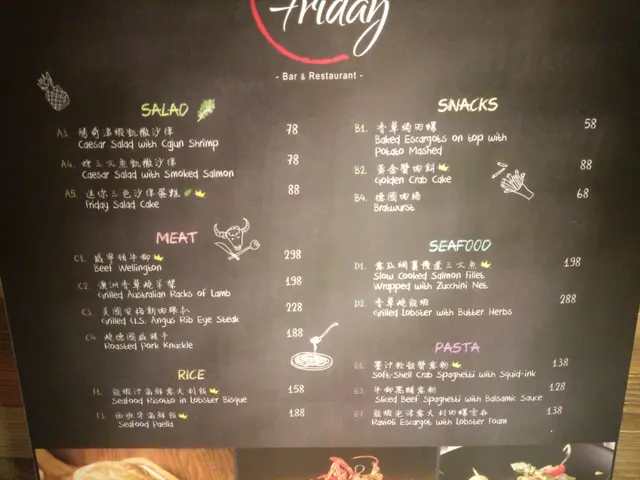 Friday
- Bar & Restaurant -
SALAD
A3. 78
Caesar Salad with Cajun Shrimp
A4. 煙三文魚凱撒沙律 78
Caesar Salad with Smoked Salmon
A5. 迷你三色沙律蛋糕 88
Friday Salad Cake
MEAT
C1. 威靈頓牛柳 298
Beef Wellington
C2. 澳洲香草燒羊架 198
Grilled Australian Racks of Lamb
C3. 美國安格斯肉眼扒 228
Grilled U.S. Angus Rib Eye Steak
C4. 燒德國咸豬手 188
Roasted Pork Knuckle
RICE
F1. 龍蝦汁海鮮意大利飯 158
Seafood Risotto in Lobster Bisque
F3. 西班牙海鮮飯 188
Seafood Paella
SNACKS
B1. 香草焗田螺 58
Baked Escargots on top with
Potato Mashed
B2. 黃金蟹肉餅 88
Golden Crab Cake
B4. 德國肉腸 68
Bratwurst
SEAFOOD
D1. 198
Slow Cooked Salmon Fillet
Wrapped with Zucchini Net
D2. 香草燒龍蝦 288
Grilled Lobster with Butter Herbs
PASTA
墨汁軟殼蟹意粉 138
Soft-Shell Crab Spaghetti with Squid-ink
牛柳黑醋意粉 128
Sliced Beef Spaghetti with Balsamic Sauce
E7. 138
Ravioli Escargot with Lobster Foam